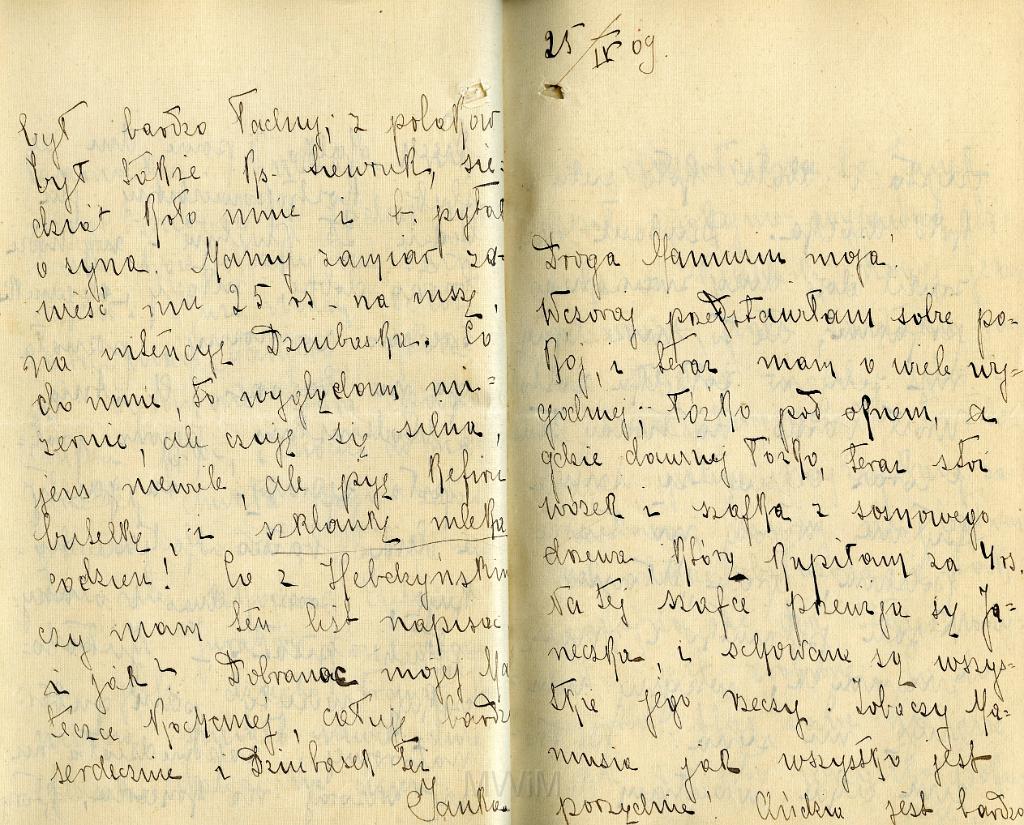 był bardzo ładny; z polaków
był także ks. Siewruk, sie-
dział koło mnie i b. pytał
o syna. Mamy zamiar za-
nieść mu 25 rs na mszę,
na intencyę Dziubaska. Co
do mnie, to wyglądam mi-
zernie, ale czuję się silna,
jem niewiele, ale piję kefiru
butelkę, i szklankę mleka
codzień! Co z Hebdzyńskim
czy mam ten list napisać
i jak? Dobranoc mojej Ma
teczce kochanej, całuję bardz
serdecznie i Dziubasek też
Janka.
25/IV 09.
Droga Mamusiu moja!
Wczoraj przedstawiłam sobie po-
kój, i teraz mam o wiele wy-
godniej: łóżko pod oknem, a
gdzie dawniej łóżko, teraz stoi
wózek i szafka z sosnowego
drzewa którą kupiłam za 4 rs.
Na tej szafce przewija się Ja-
neczka, i schowane są wszys-
tkie jego rzeczy. Zobaczy Ma-
musia jak wszystko jest
porządnie! Andzia jest bardzo
MWiM